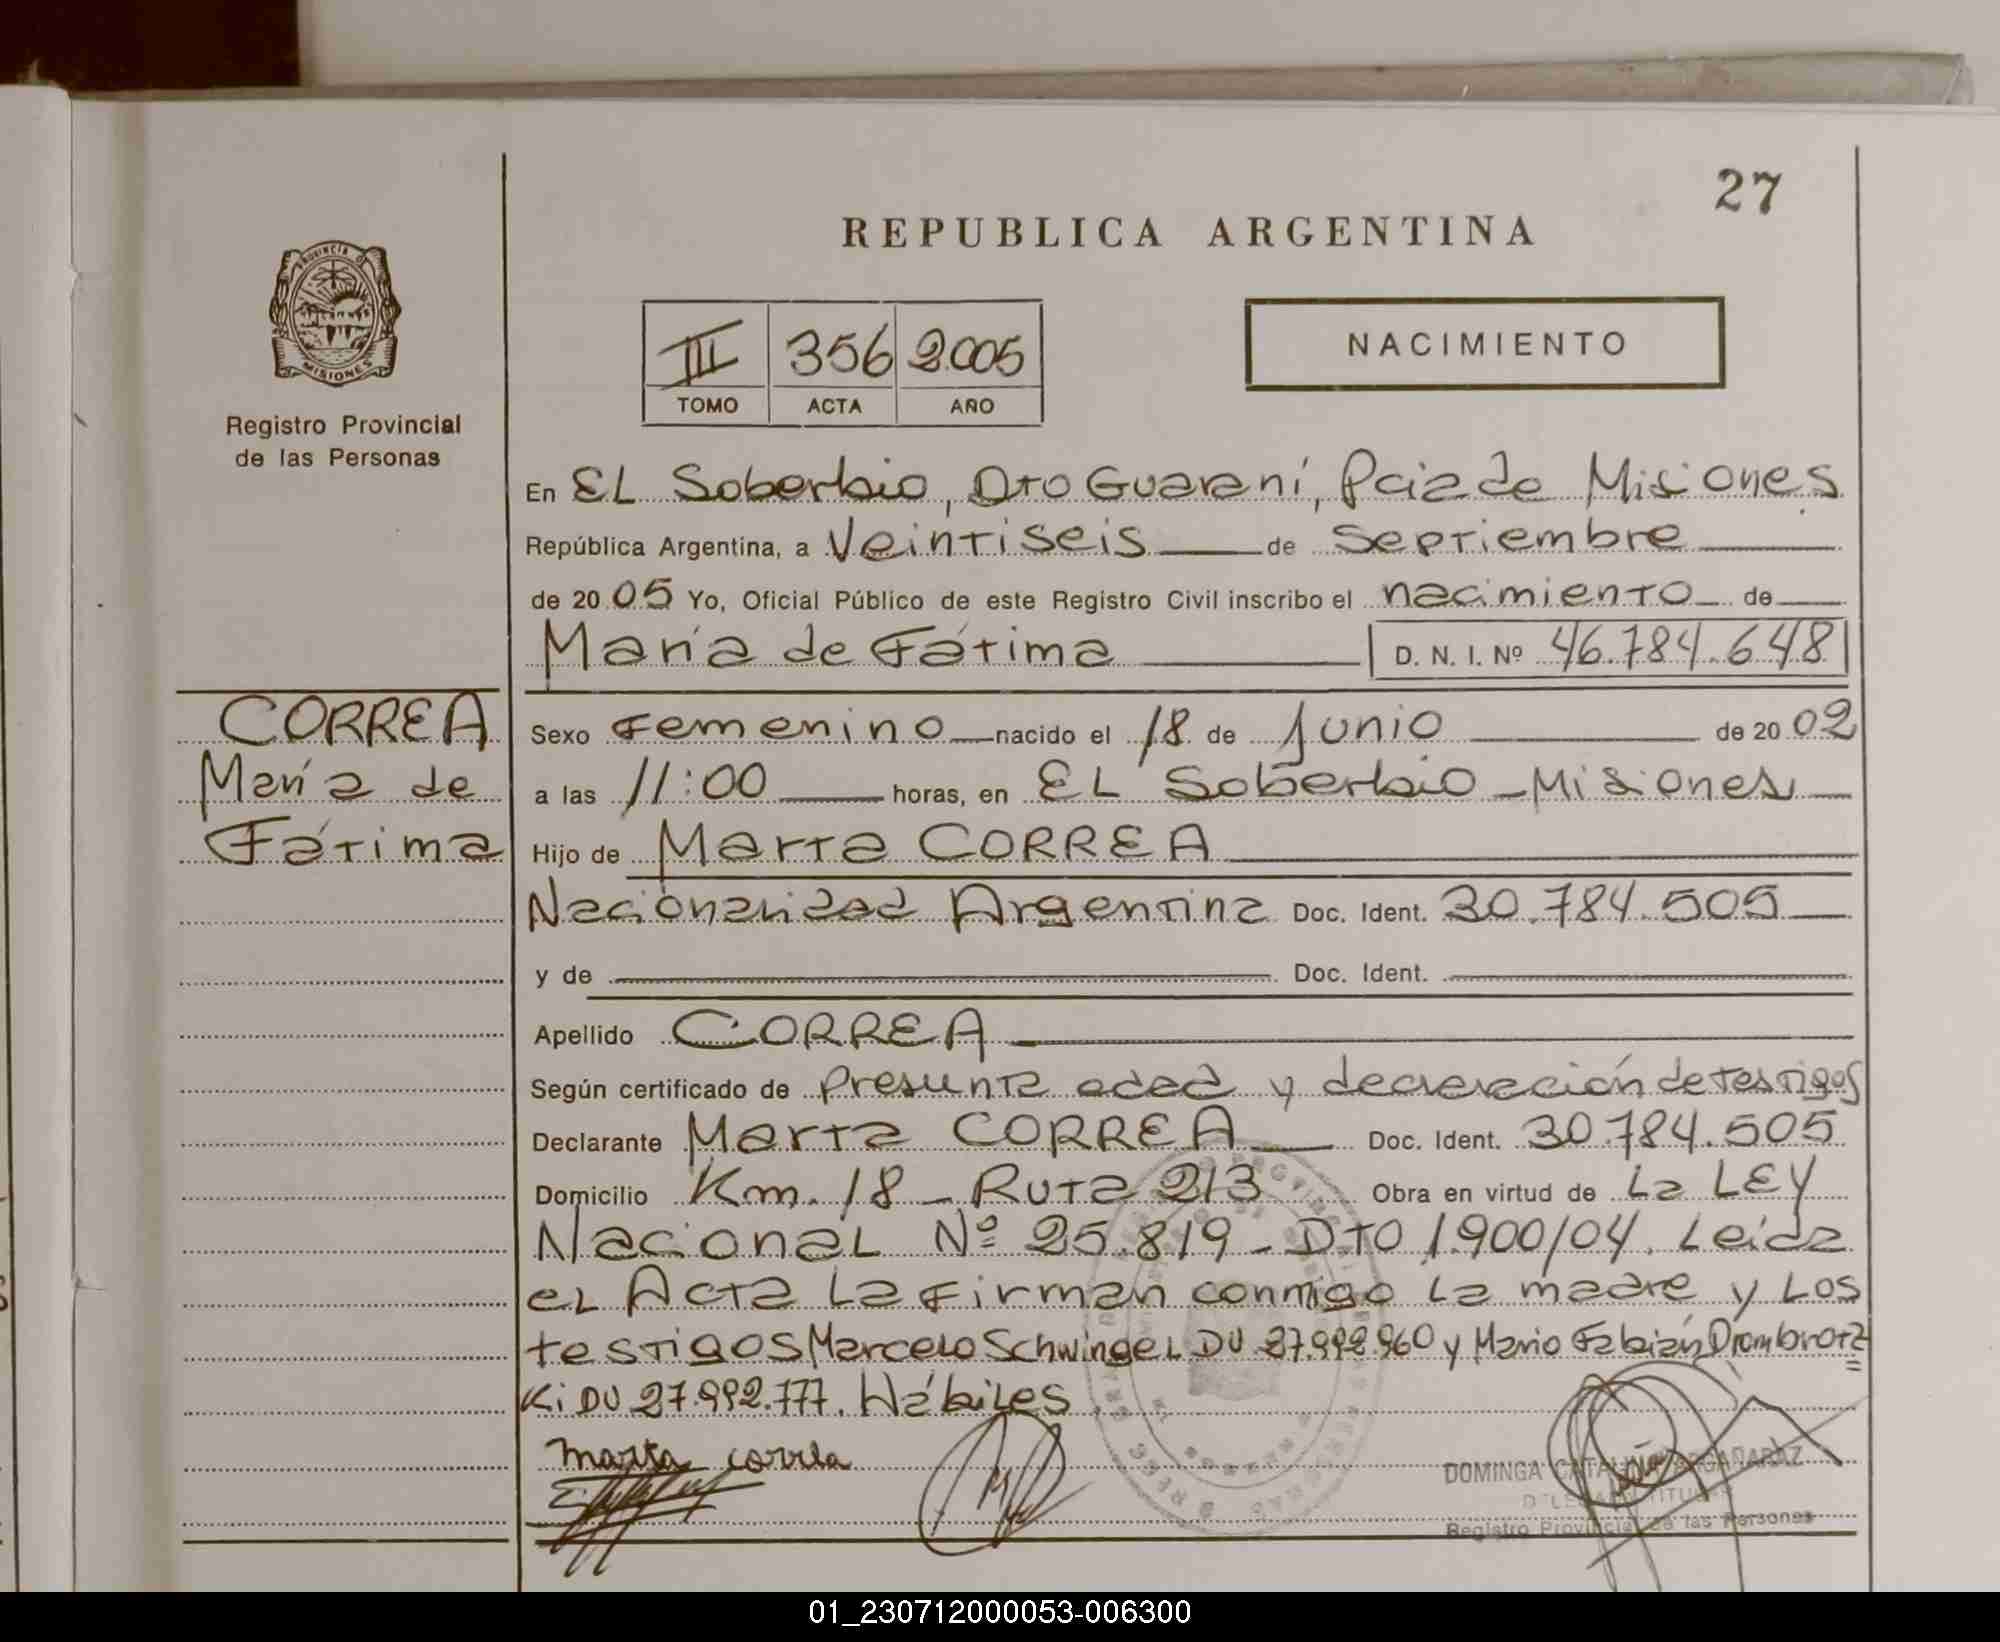 27
REPUBLICA ARGENTINA
PROVINCIA DE
MISIONES
Registro Provincial
de las Personas
III 356 2005
TOMO ACTA AÑO
NACIMIENTO
En EL Soberbio, Dto Guaraní, Pcia de Misiones
República Argentina, a Veintiseis de Septiembre
de 20 05 Yo, Oficial Público de este Registro Civil inscribo el nacimiento de
María de Fátima D. N. I. Nº 46.784.648
CORREA
María de
Fátima
Sexo Femenino nacido el 18 de Junio de 20 02
a las 11:00 horas, en EL Soberbio - Misiones
Hijo de Marta CORREA
Nacionalidad Argentina Doc. Ident. 30.784.505
y de Doc. Ident.
Apellido CORREA
Según certificado de Presunta edad y declaración de testigos
Declarante Marta CORREA Doc. Ident. 30.784.505
Domicilio Km. 18 - Ruta 213 Obra en virtud de La LEY
Nacional Nº 25.819 - DTO 1.900/04. Leída
el Acta La Firman conmigo La madre y Los
testigos Marcelo Schwingel DU 27.992.960 y Mario Fabián Drombrotz
Ki DU 27.992.777. Hábiles
Marta correa
DOMINGA CATALINA ARGAÑARAZ
DELEGADA TITULAR
Registro Provincial de las Personas
01_230712000053-006300